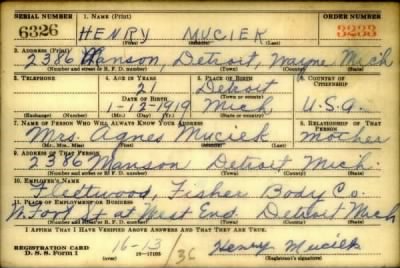 SERIAL NUMBER 1. NAME (Print) ORDER NUMBER
6326 HENRY MUCIEK 3233
(First) (Middle) (Last)
2. ADDRESS (Print)
2386 Manson, Detroit, Wayne Mich
(Number and Street or R. F. D. number) (Town) (County) (State)
3. TELEPHONE 4. AGE IN YEARS 5. PLACE OF BIRTH 6. COUNTRY OF CITIZENSHIP
21 Detroit
DATE OF BIRTH (Town or county)
1-12-1919 Mich U.S.A.
(Exchange) (Number) (Mo.) (Day) (Yr.) (State or country)
7. NAME OF PERSON WHO WILL ALWAYS KNOW YOUR ADDRESS 8. RELATIONSHIP OF THAT PERSON
Mrs. Agnes Muciek mother
(Mr., Mrs., Miss) (First) (Middle) (Last)
9. ADDRESS OF THAT PERSON
2386 Manson Detroit Mich.
(Number and street or R. F. D. number) (Town) (County) (State)
10. EMPLOYER'S NAME
Fleetwood, Fisher Body Co.
11. PLACE OF EMPLOYMENT OR BUSINESS
W. Fort St. at West End. Detroit Mich
(Number and street or R. F. D. number) (Town) (County) (State)
I AFFIRM THAT I HAVE VERIFIED ABOVE ANSWERS AND THAT THEY ARE TRUE.
REGISTRATION CARD
D. S. S. Form 1 16-13/36 Henry Muciek
16-17105 (Registrant's signature)